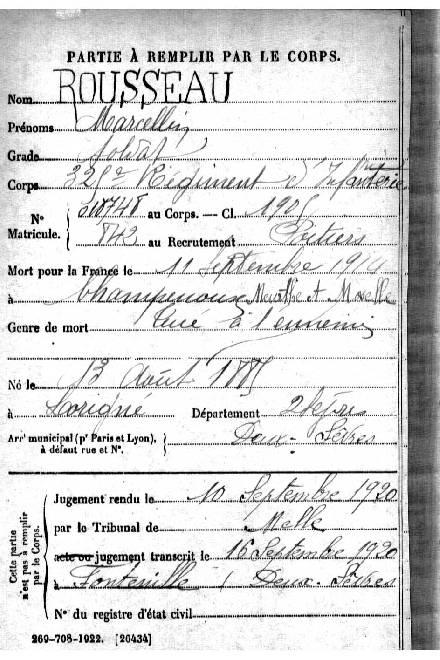 PARTIE À REMPLIR PAR LE CORPS.
Nom ROUSSEAU
Prénoms Marcellin
Grade Soldat
Corps 325e Régiment d'Infanterie
No Matricule. { au Corps. — Cl. 1905
843 au Recrutement Poitiers
Mort pour la France le 11 Septembre 1914
à Champenoux Meurthe et Moselle
Genre de mort Tué à l'ennemi
Né le 13 Août 1885
à Lorigné Département 2 Sèvres
Arrt municipal (pr Paris et Lyon), à défaut rue et No. { Deux-Sèvres
Cette partie n'est pas à remplir par le Corps.
Jugement rendu le 10 Septembre 1920
par le Tribunal de Melle
acte ou jugement transcrit le 16 Septembre 1920
à Fontenille / Deux-Sèvres
No du registre d'état civil
269-708-1922. [26434]